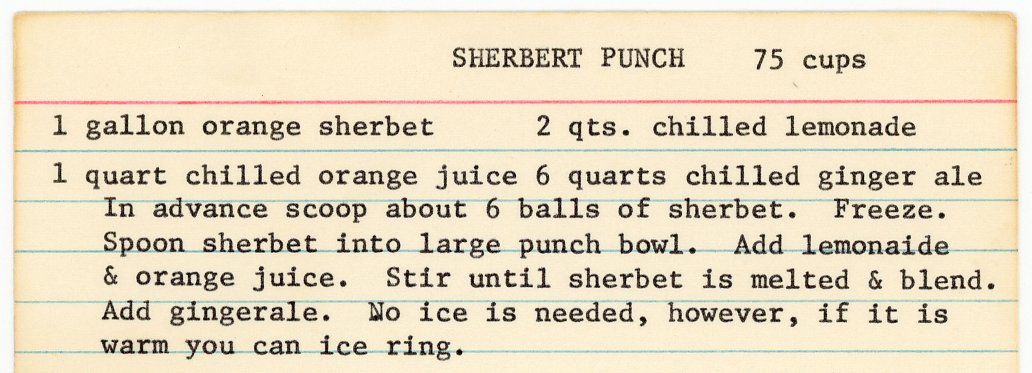 SHERBERT PUNCH 75 cups
1 gallon orange sherbet 2 qts. chilled lemonade
1 quart chilled orange juice 6 quarts chilled ginger ale
In advance scoop about 6 balls of sherbet. Freeze.
Spoon sherbet into large punch bowl. Add lemonaide
& orange juice. Stir until sherbet is melted & blend.
Add gingerale. No ice is needed, however, if it is
warm you can ice ring.